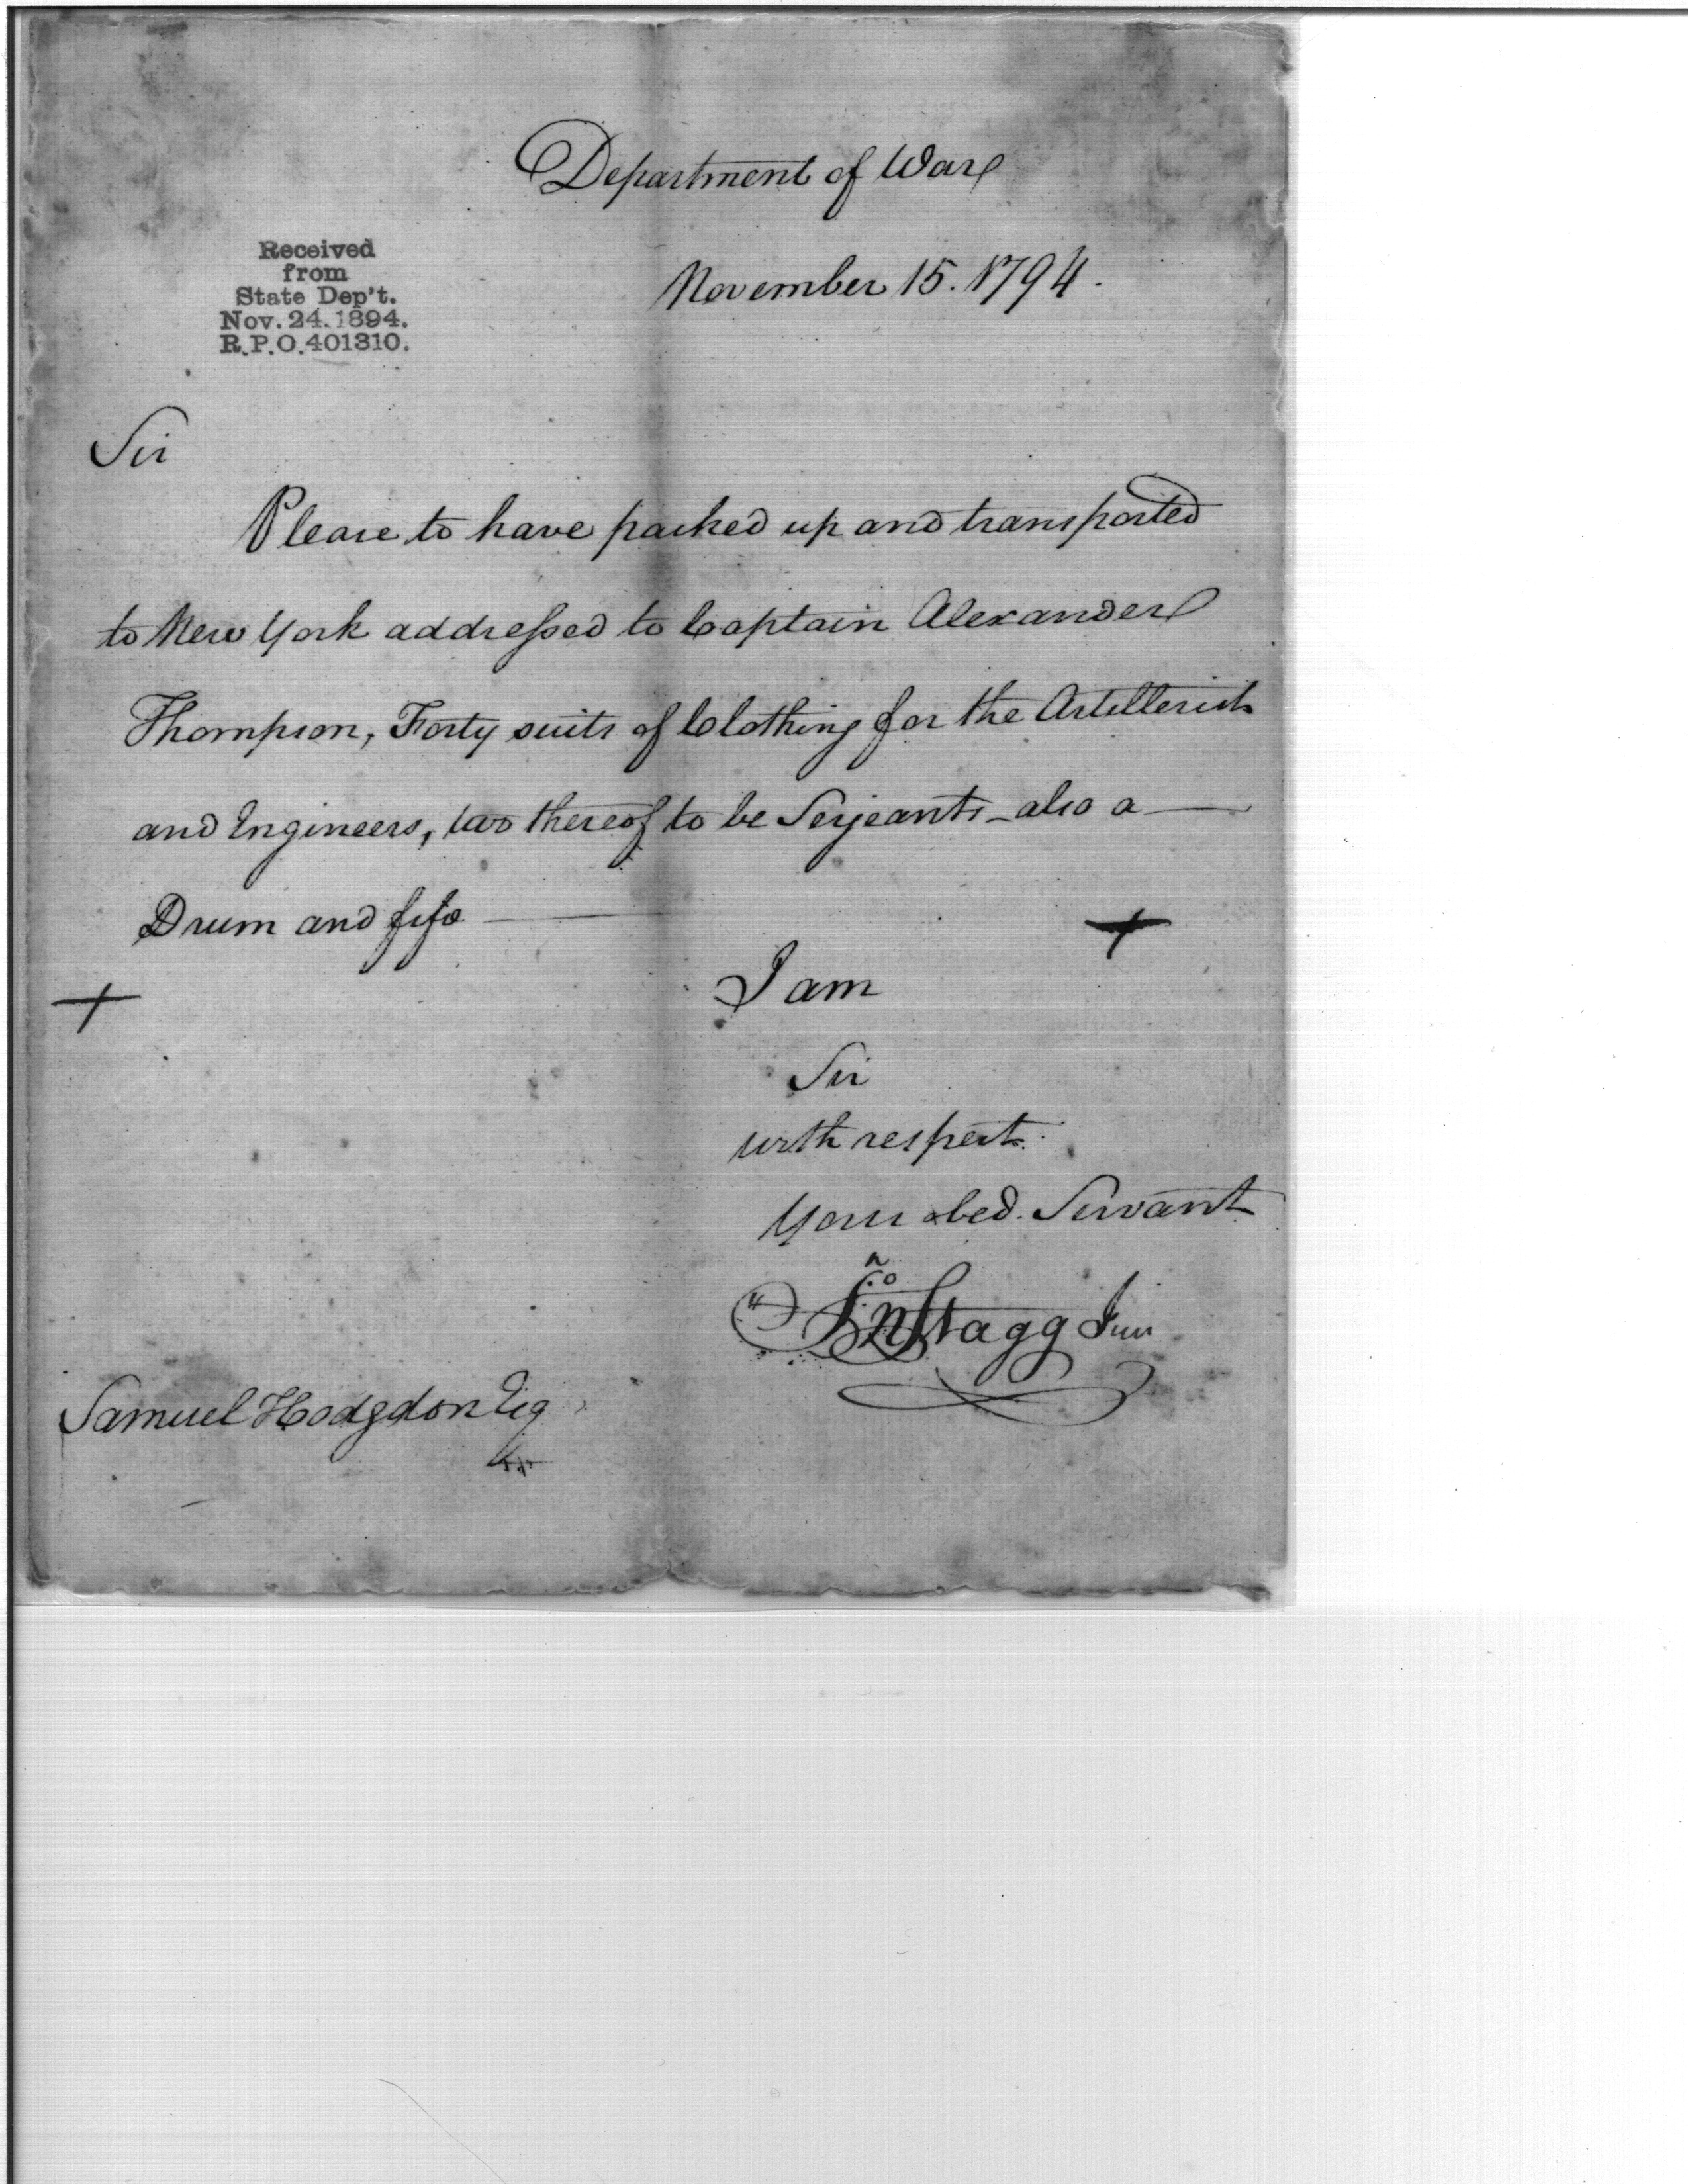 Department of War
November 15. 1794.
Received
from
State Dep't.
Nov. 24. 1894.
R.P.O. 401310.
Sir
Please to have packed up and transported
to New York addressed to Captain Alexander
Thompson, Forty suits of Clothing for the Artillerists
and Engineers, two thereof to be Serjeants - also a
Drum and fife
I am
Sir
with respect
Your obed. Servant
Jno Stagg Jun
Samuel Hodgdon Esq